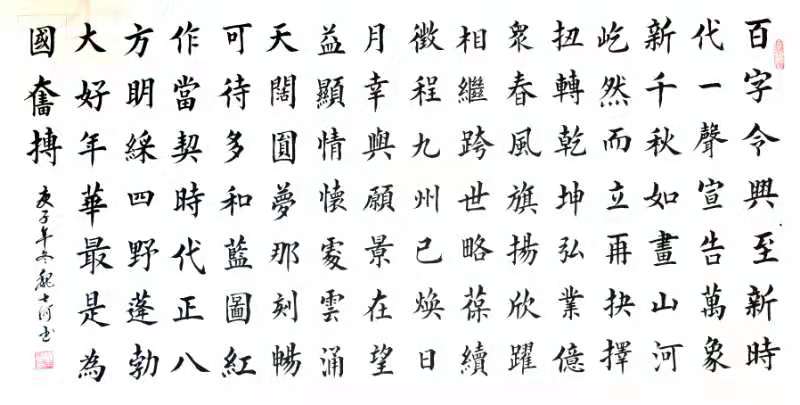 百字令興至新時
代一聲宣告萬象
新千秋如畫山河
屹然而立再抉擇
扭轉乾坤弘業億
衆春風旗揚欣躍
相繼跨世略葆續
徵程九州已煥日
月幸與願景在望
益顯情懷處雲涌
天闊圓夢那刻暢
可待多和藍圖紅
作當契時代正八
方明綵四野蓬勃
大好年華最是為
國奮搏
庚子年冬魏士河书